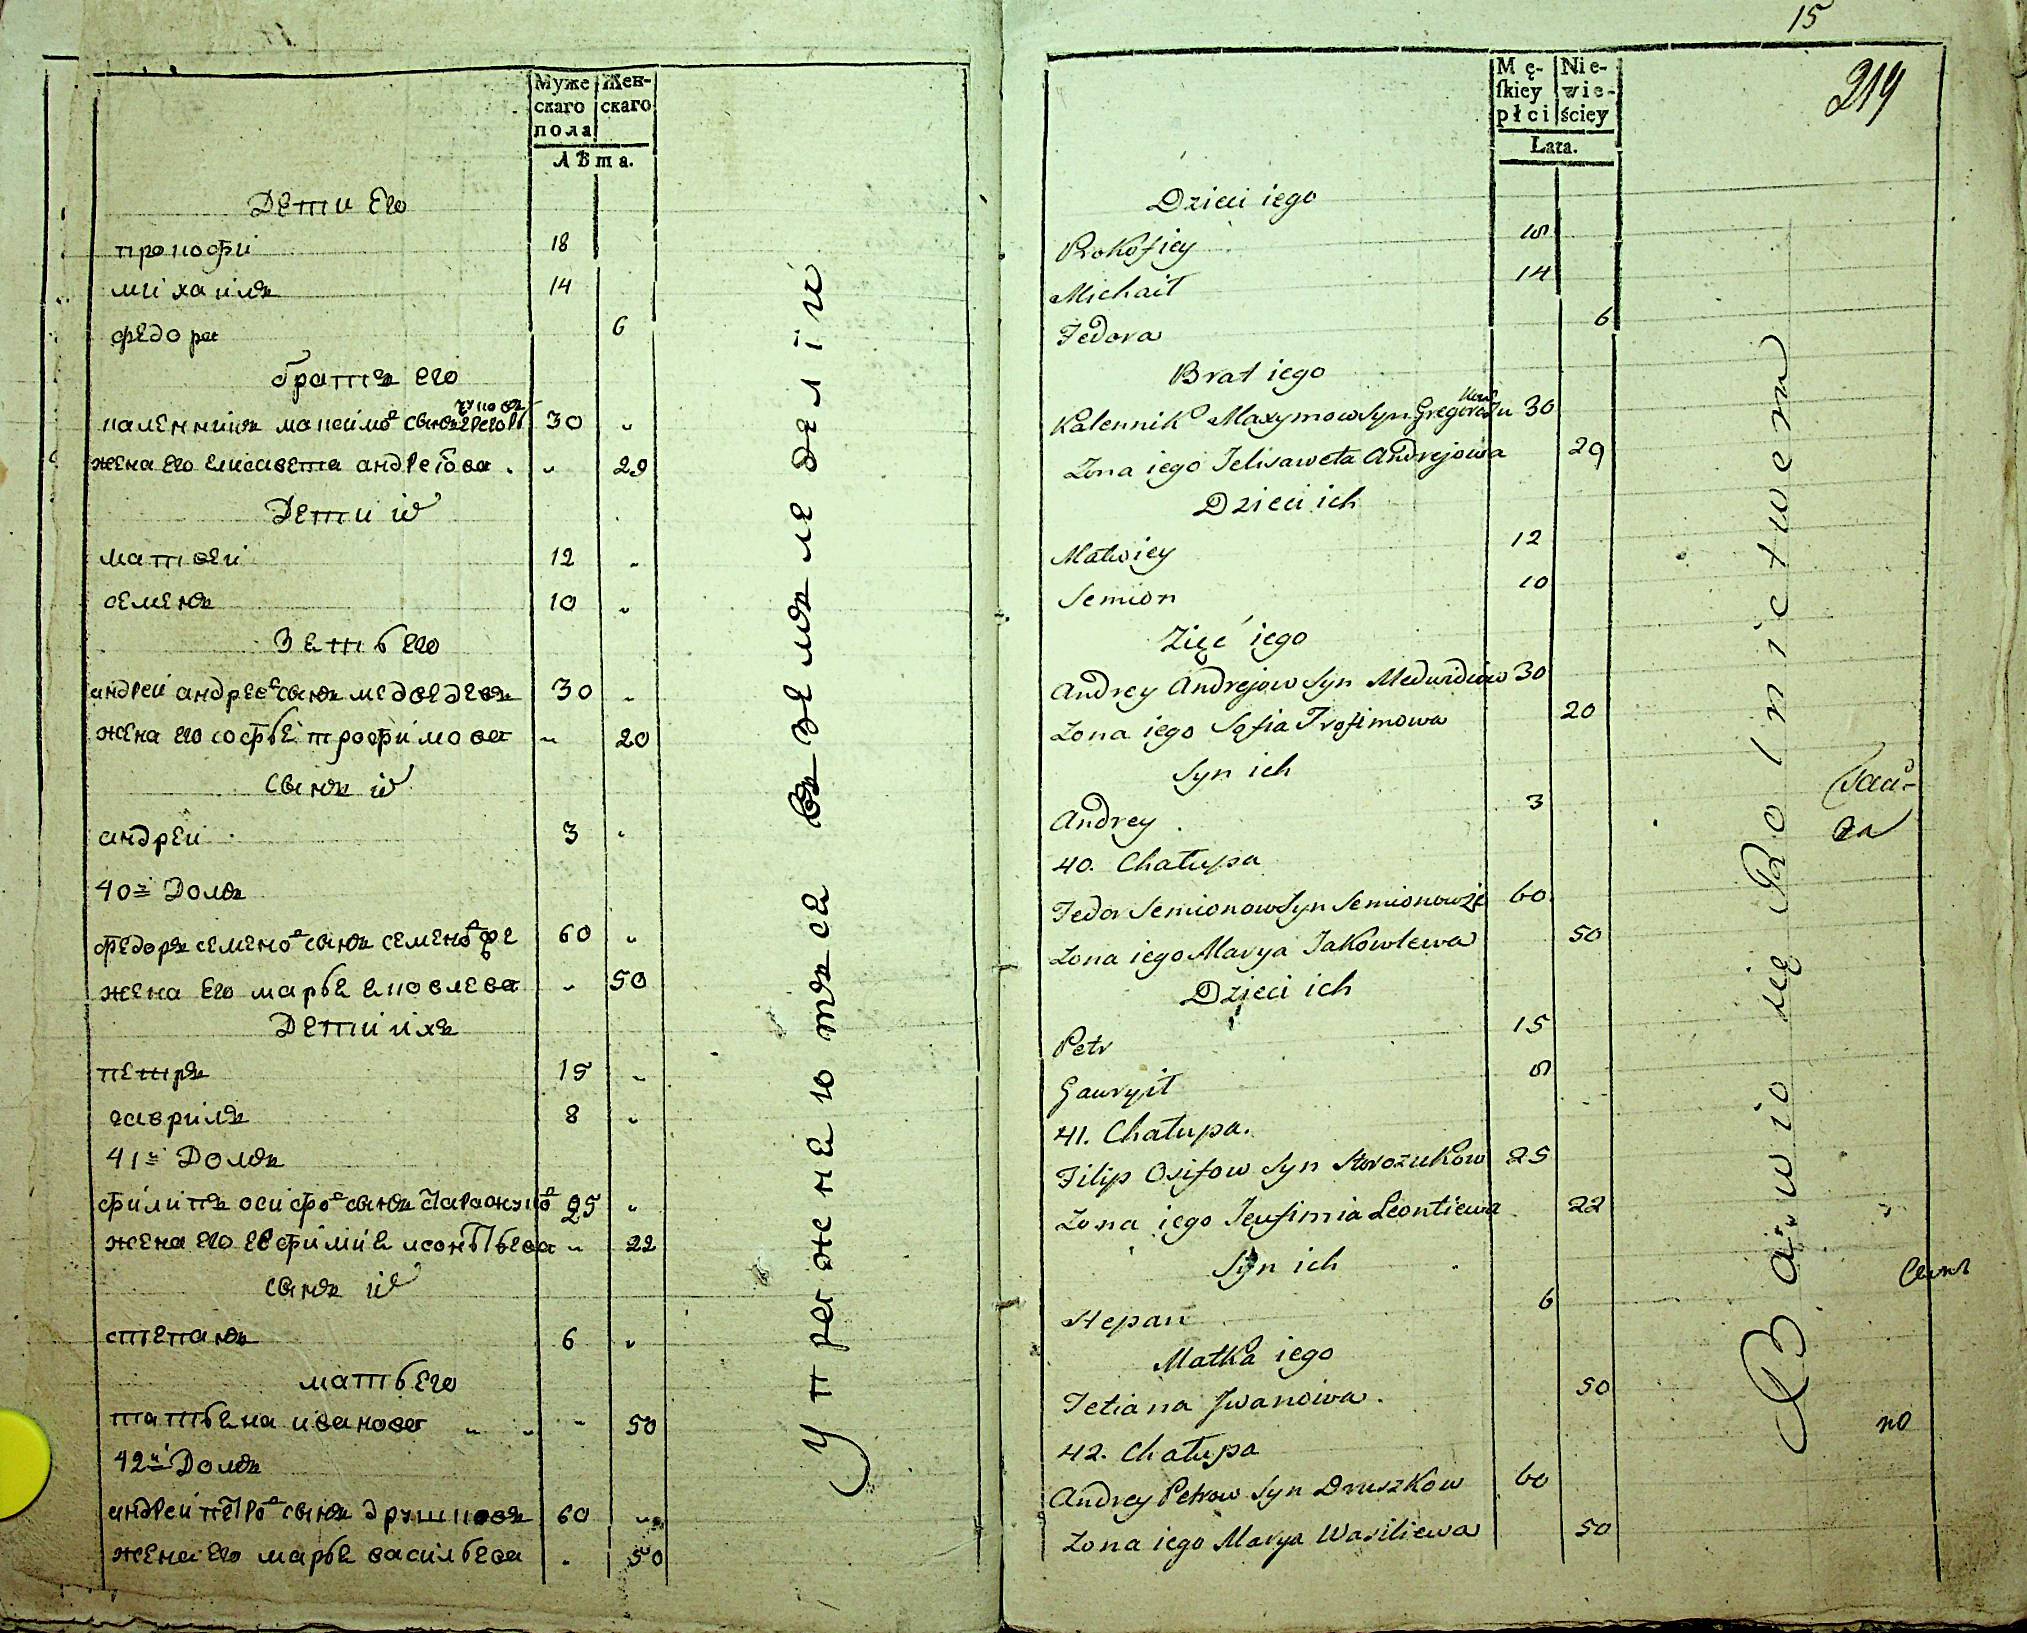 Муже
скаго
пола
Жен-
скаго
Лѣта.
Дети его
прокофи 18
михаилъ 14
федора 6
братъ его
каленникъ максимовъ сынъ 30
жена его елисавета андреева 29
Дети их
матвеи 12
семенъ 10
Зеть его
андреи андреевъ сынъ медведевъ 30
жена его софья трофимова 20
сынъ их
андреи 3
40й Домъ
федоръ семеновъ сынъ 60
жена его марье ековлева 50
Дети ихъ
петръ 15
гаврилъ 8
41й Домъ
филипъ осифовъ сынъ 25
жена его евфимие леонтьева 22
сынъ их
степанъ 6
мать его
татьена иванова 50
42й Домъ
андреи петровъ сынъ друшковъ 60
жена его марье васильева 50
Упражнеютъса въ земледелiи
15
219
Mę-
skiey
płci
Nie-
wie-
ściey
Lata.
Dzieci iego
Prokofiey 18
Michaił 14
Fedora 6
Brat iego
Kalennik Maxymow Syn 30
Żona iego Jelisaweta Andrejowa 29
Dzieci ich
Matwiey 12
Semion 10
Zięć iego
Andrey Andrejow Syn Medwidiow 30
Żona iego Sofia Trofimowa 20
Syn ich
Andrey 3
40. Chałupa
Fedor Semionow Syn 60
Żona iego Marya Jakowlewa 50
Dzieci ich
Petr 15
Gawryił 8
41. Chałupa.
Filip Osifow Syn Storożukow 25
Żona iego Jeufimia Leontiewa 22
Syn ich
Stepan 6
Matka iego
Tetiana Jwanowa. 50
42. Chałupa
Andrey Petrow Syn Druszkow 60
Żona iego Marya Wasiliewa 50
Bawio się Rolnictwem
по